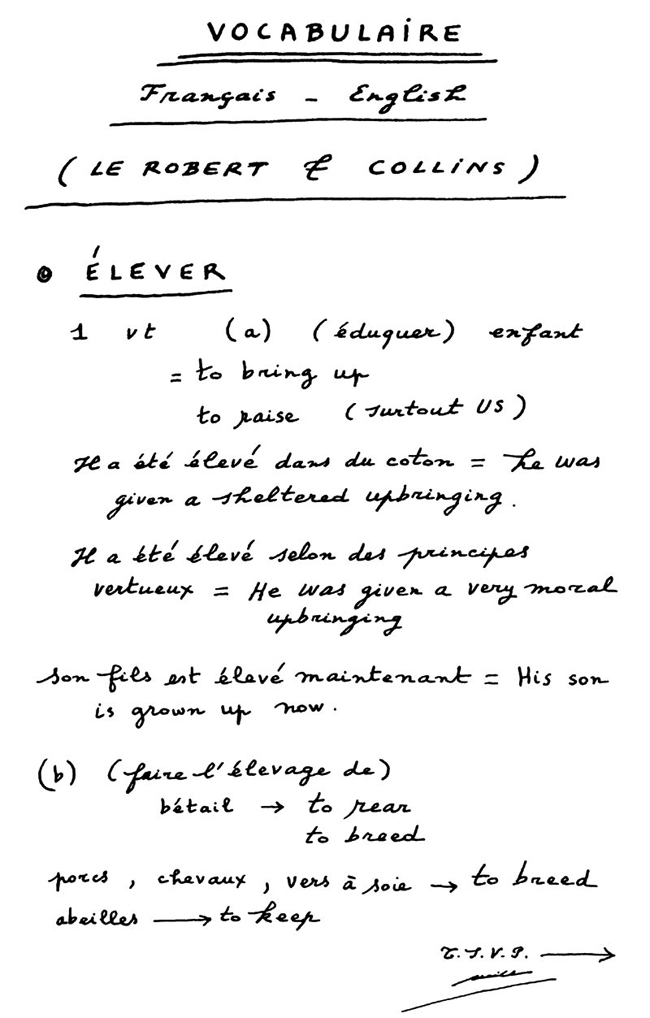 VOCABULAIRE
Français - English
(LE ROBERT & COLLINS)
ÉLEVER
1 vt (a) (éduquer) enfant
= to bring up
to raise (surtout US)
Il a été élevé dans du coton = he was
given a sheltered upbringing.
Il a été élevé selon des principes
vertueux = He was given a very moral
upbringing
son fils est élevé maintenant = His son
is grown up now.
(b) (faire l'élevage de)
bétail → to rear
to breed
porcs, chevaux, vers à soie → to breed
abeilles → to keep
T.S.V.P. →